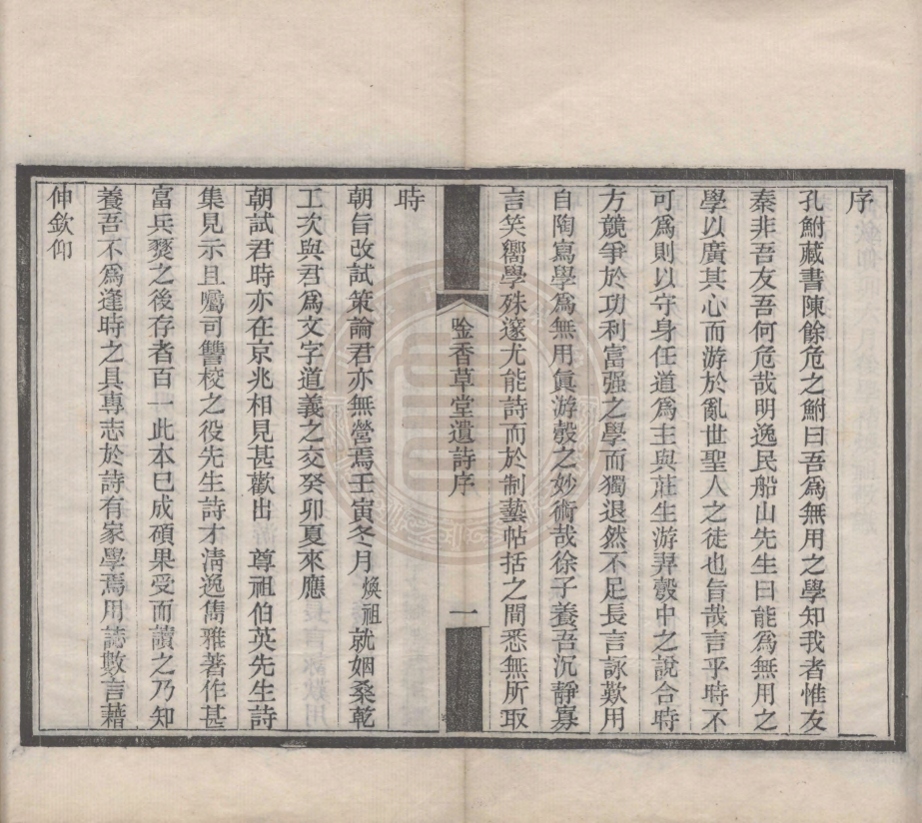 序
孔鮒藏書陳餘危之鮒曰吾爲無用之學知我者惟友
秦非吾友吾何危哉明逸民船山先生曰能爲無用之
學以廣其心而游於亂世聖人之徒也旨哉言乎時不
可爲則以守身任道爲主與莊生游羿彀中之說合時
方競爭於功利富强之學而獨退然不足長言詠歎用
自陶寫學爲無用眞游彀之妙術哉徐子養吾沉靜寡
言笑嚮學殊邃尤能詩而於制藝帖括之間悉無所取
唫香草堂遺詩序
一
時
朝旨改試策論君亦無營焉壬寅冬月煥祖就姻桑乾
工次與君爲文字道義之交癸卯夏來應
朝試君時亦在京兆相見甚歡出 尊祖伯英先生詩
集見示且囑司讐校之役先生詩才淸逸雋雅著作甚
富兵燹之後存者百一此本巳成碩果受而讀之乃知
養吾不爲逢時之具專志於詩有家學焉用誌數言藉
伸欽仰